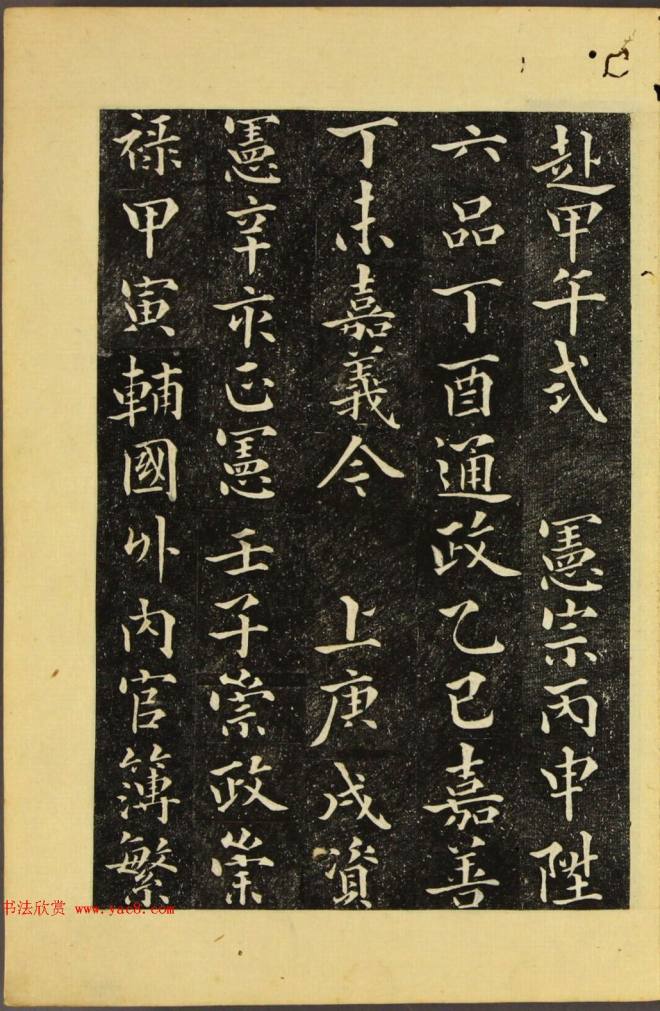 赴甲午式　憲宗丙申陞
六品丁酉通政乙巳嘉善
丁未嘉義今　上庚戌資
憲辛亥正憲壬子崇政崇
祿甲寅輔國外內官簿繁
书法欣赏 www.yac8.com